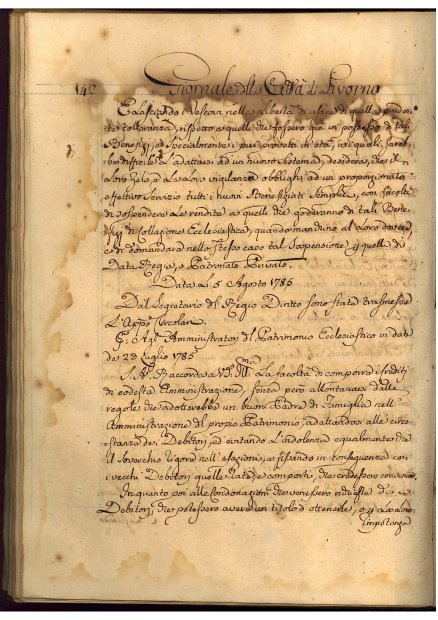 142 Giornale della Città di Livorno
E lasciando i Vescovi nella libertà di usare di quella prudente
tolleranza, rispetto a quelli che fossero già in possesso di tali
Benefizj, e specialmente i più provetti in età, a i quali sareb-
be difficile l'adattarsi ad un nuovo sistema, desidera, che il
Loro zelo, e La loro vigilanza obblighi ad un proporzionato
effettivo Servizio tutti i nuovi Benefiziati Semplici, con facoltà
di sospendere Le rendite a quelli che goderanno di tali Bene-
fizj di Collazione Ecclesiastica, quando manchino al Loro dovere,
e di domandare nello stesso caso tal Sospensione p quelli di
Data Regia, o Patronato Privato.
Data Li 5 Agosto 1785
Dal Segretario del Regio Diritto sono state trasmesse
L'Appo Circolari
P. Agl' Amministratori del Patrimonio Ecclesiastico in data
de 23 Luglio 1785
S. A. R. accorda a VS. Ill.ma La facoltà di comporre i crediti
di codesta Amministrazione, senza però allontanarsi dalle
regole che adotterebbe un buon Padre di Famiglia nell'
Amministrazione del propio Patrimonio, adattandosi alle circo-
stanze de' Debitori, ed evitando L'indolenza egualmente che
il soverchio rigore nell' esazioni, e fissando in conseguenza con
i vecchi Debitori quelle rate, e comporti, che credessero convenire,
In quanto poi alle condonazioni che venissero richieste da
Debitori, che potessero avere un titolo d'ottenerle, o p La Loro
impotenza